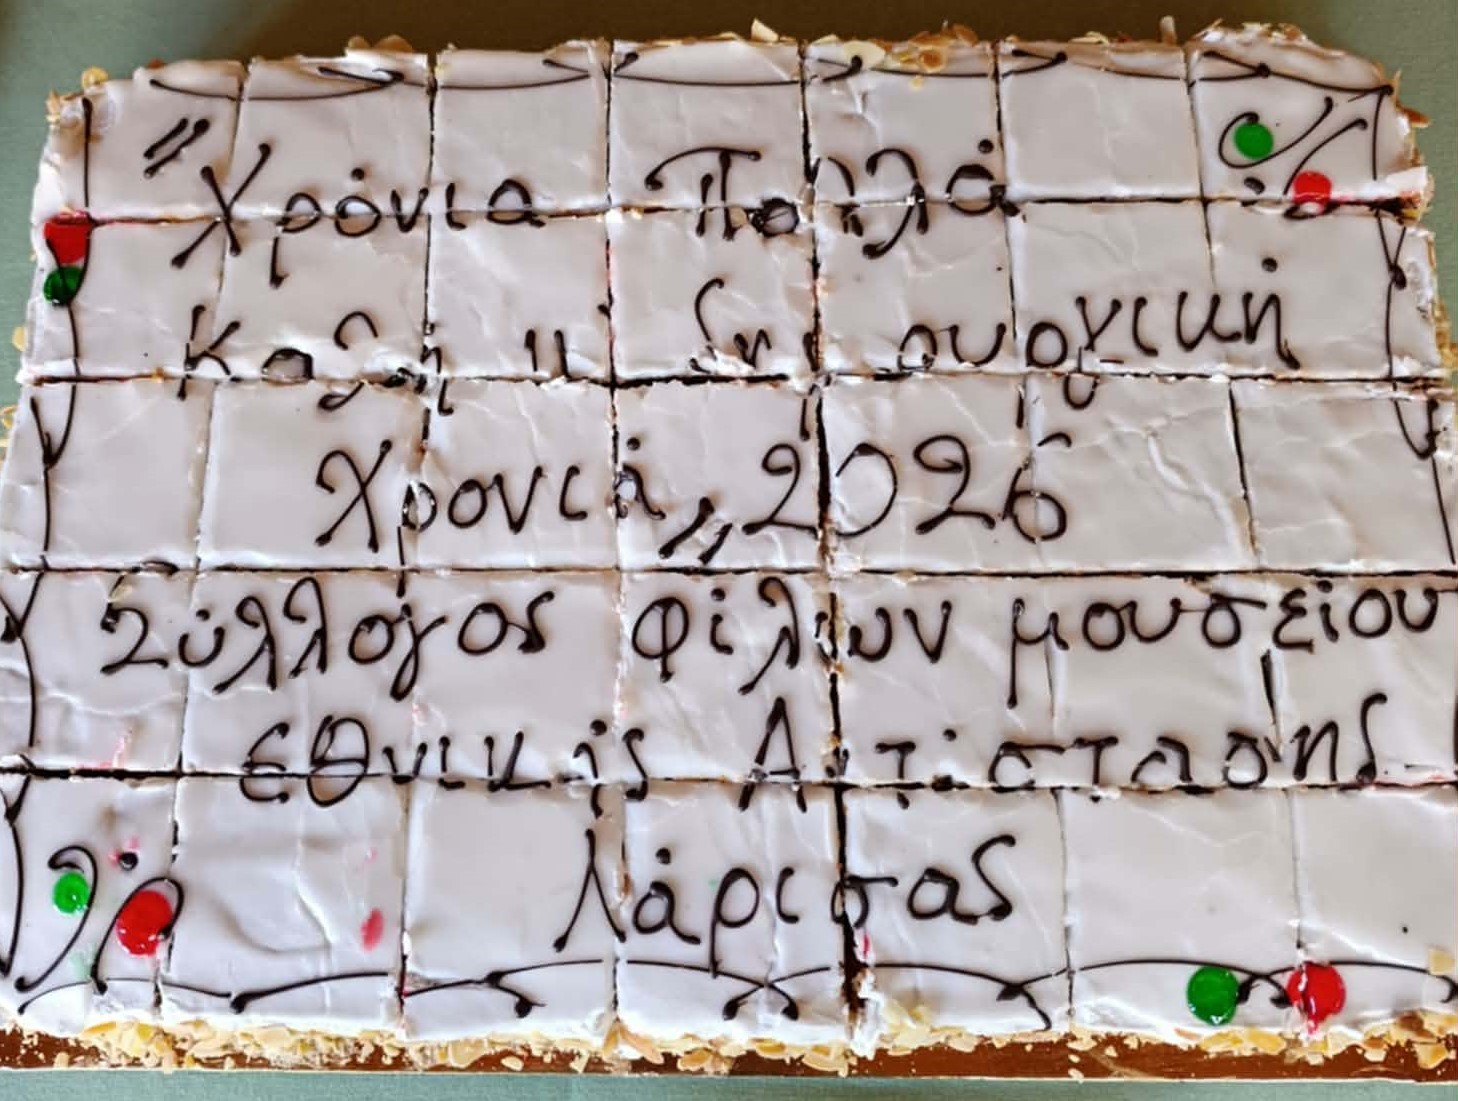 "Χρόνια Πολλά
Καλή κ' δημιουργική
Χρονιά,, 2026
Σύλλογος φίλων μουσείου
εθνικής Αντίστασης
Λάρισας